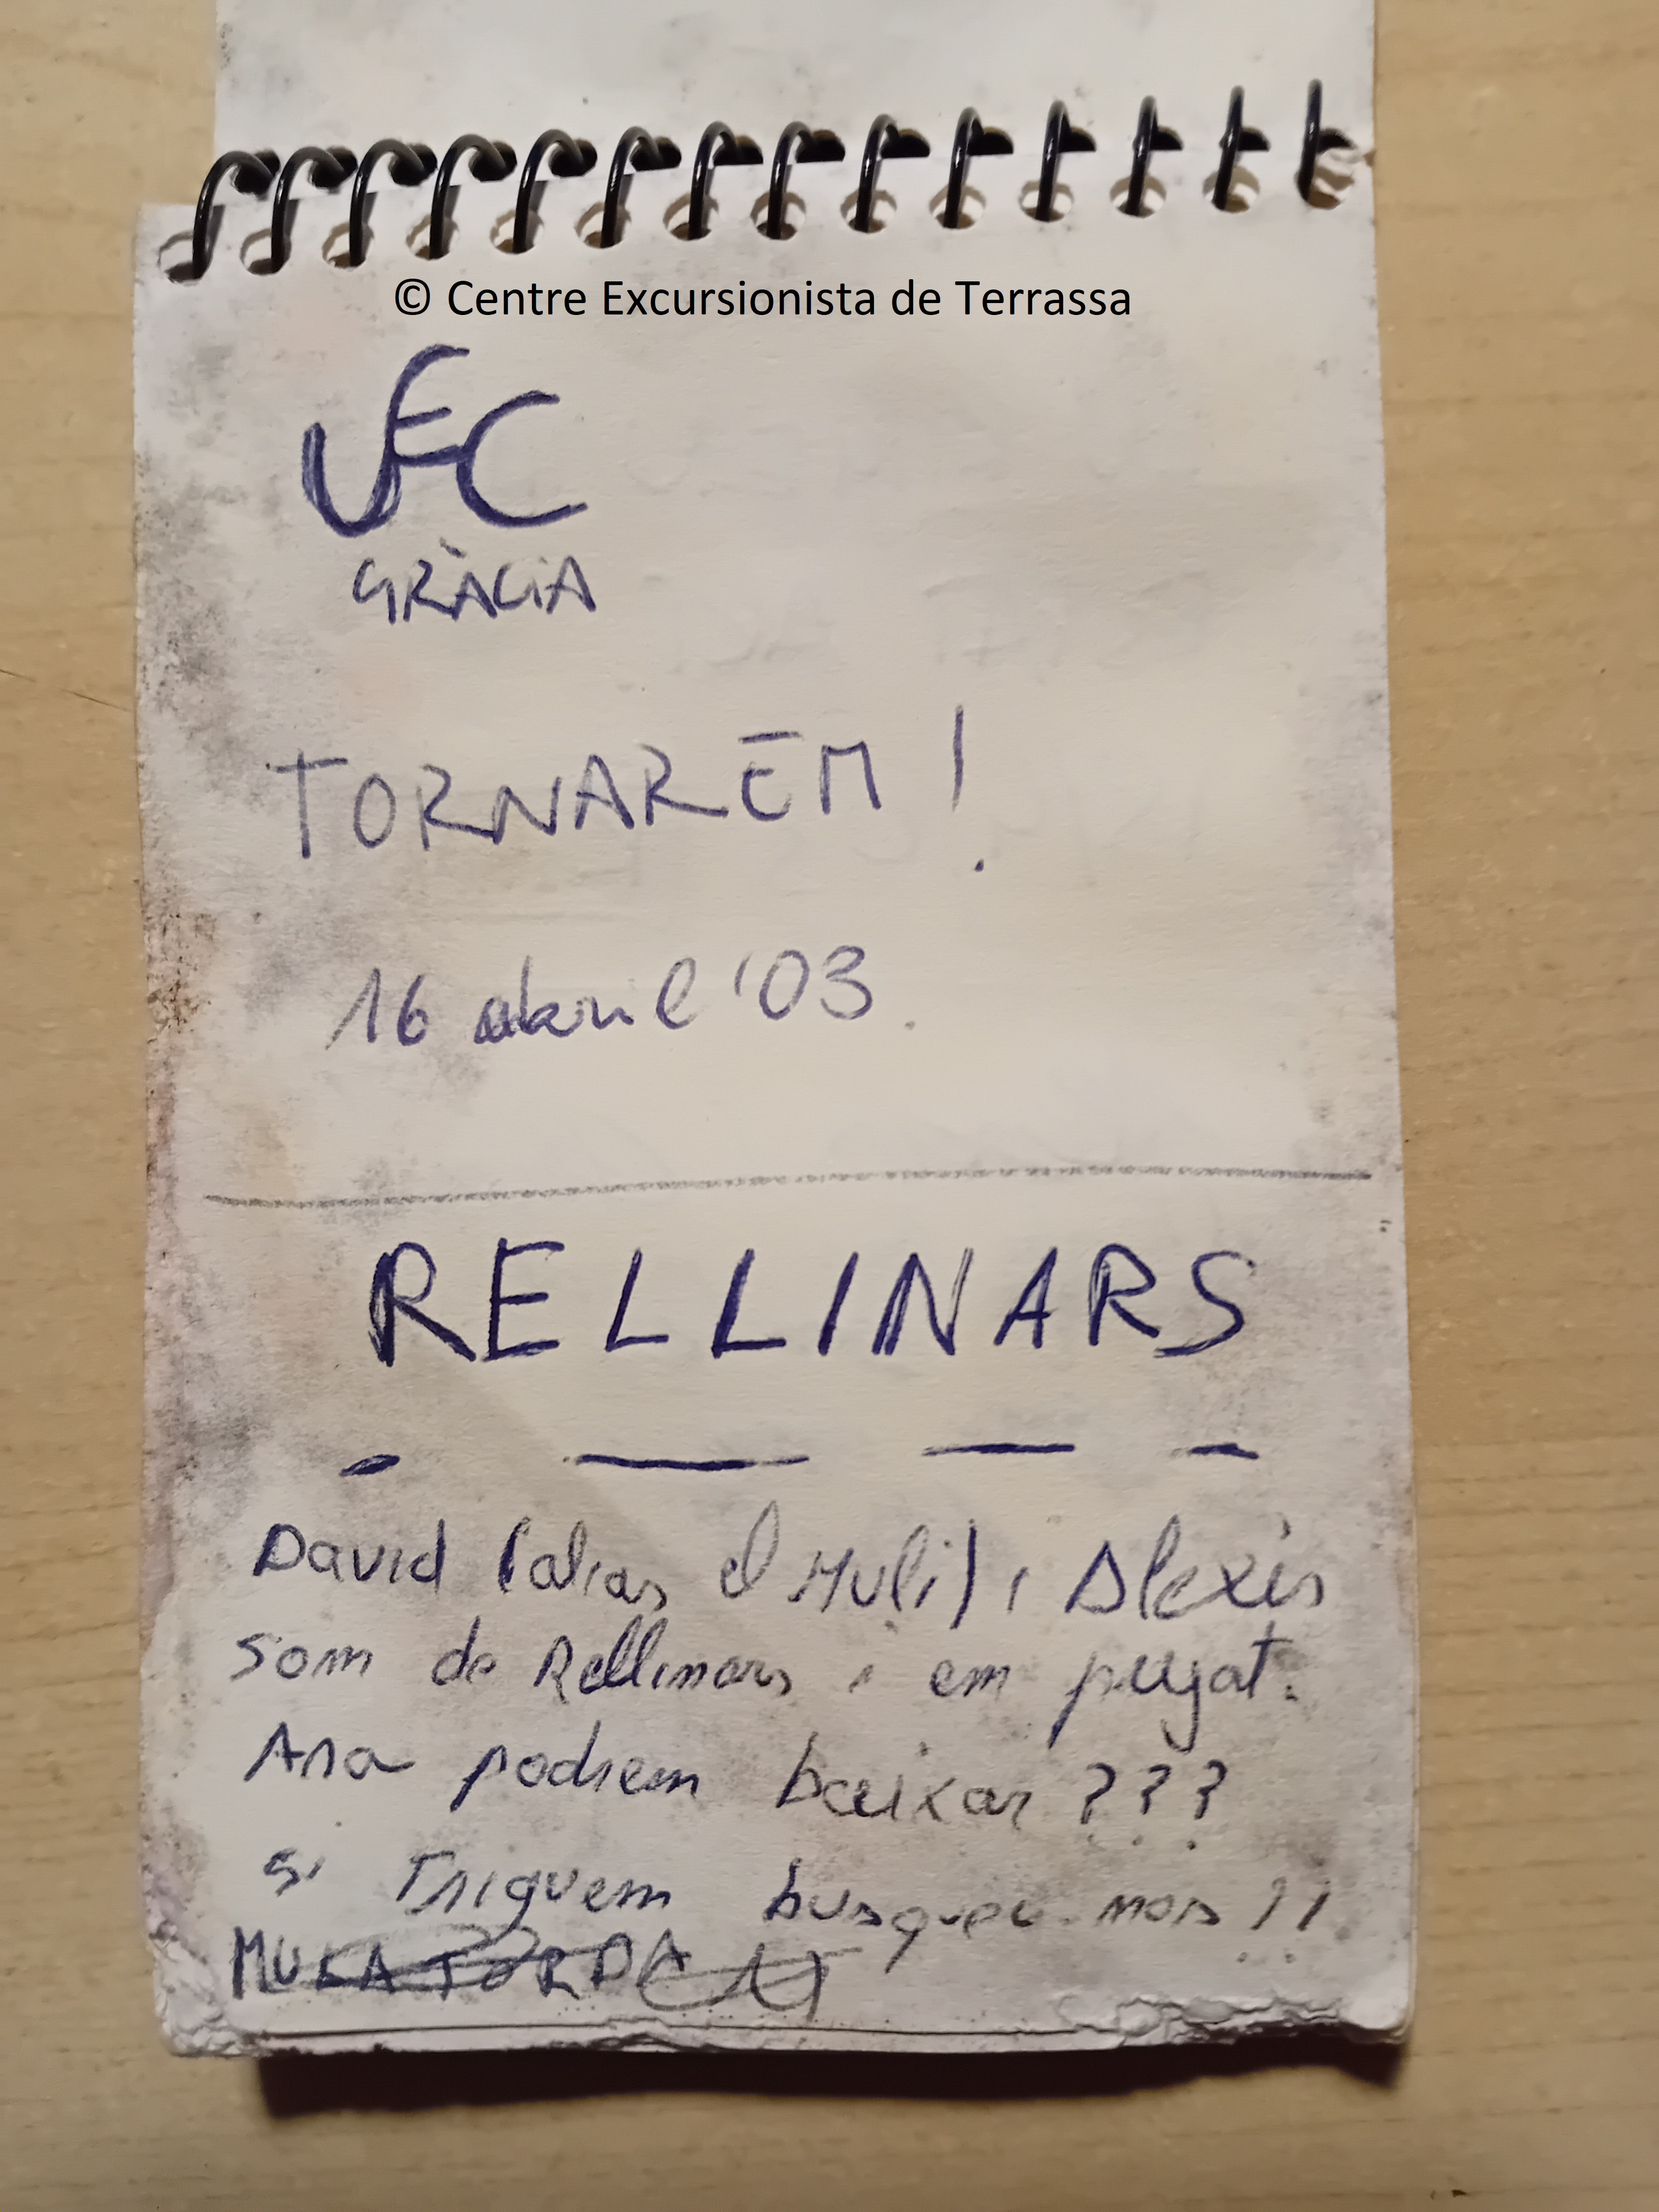 © Centre Excursionista de Terrassa
UEC
GRÀCIA
TORNAREM!
16 abril '03.
RELLINARS
David (alias el Muli) i Alexis
som de Rellinars i em pujat.
Ara podrem baixar ???
si Triguem busqueu-nos !!